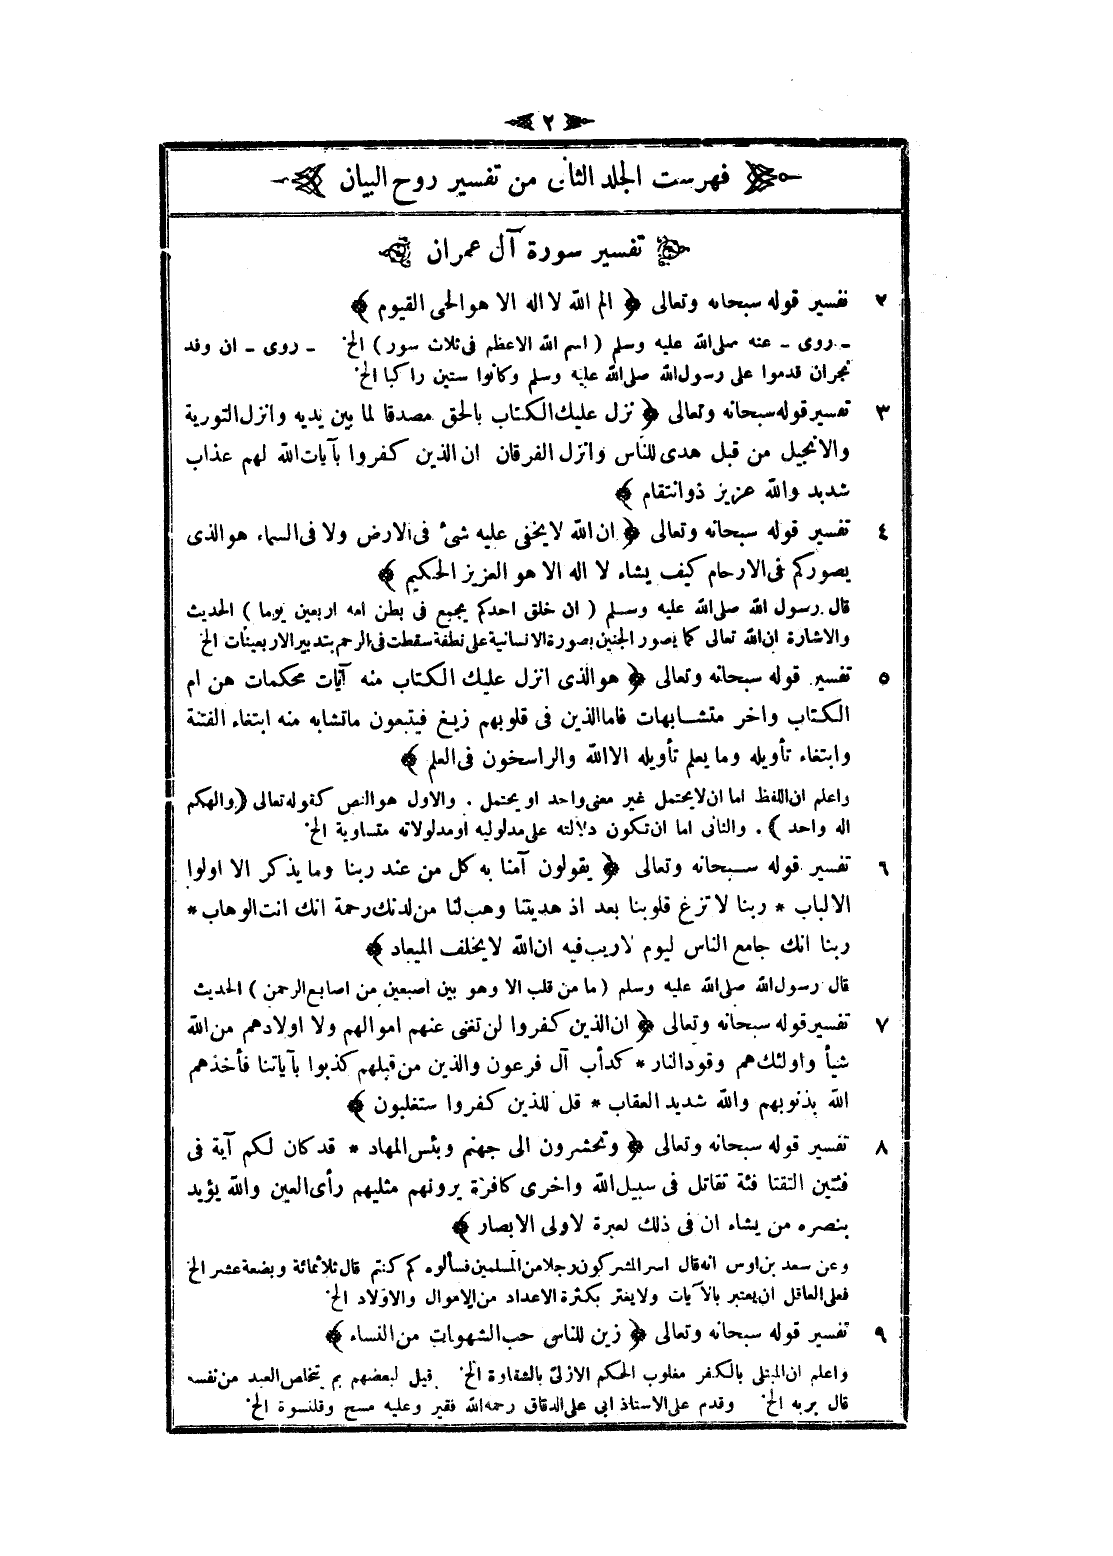 ٢
فهرست الجلد الثانى من تفسير روح البيان
تفسير سورة آل عمران
٢ تفسير قوله سبحانه وتعالى ﴿ الم الله لا اله الا هو الحى القيوم ﴾
ـ روى ـ عنه صلى الله عليه وسلم ( اسم الله الاعظم فى ثلاث سور ) الخ ـ روى ـ ان وفد
نجران قدموا على رسول الله صلى الله عليه وسلم وكانوا ستين راكبا الخ
٣ تفسير قوله سبحانه وتعالى ﴿ نزل عليك الكتاب بالحق مصدقا لما بين يديه وانزل التورية
والانجيل من قبل هدى للناس وانزل الفرقان ان الذين كفروا بآيات الله لهم عذاب
شديد والله عزيز ذو انتقام ﴾
٤ تفسير قوله سبحانه وتعالى ﴿ ان الله لا يخفى عليه شئ فى الارض ولا فى السماء هو الذى
يصوركم فى الارحام كيف يشاء لا اله الا هو العزيز الحكيم ﴾
قال رسول الله صلى الله عليه وسلم ( ان خلق احدكم يجمع فى بطن امه اربعين يوما ) الحديث
والاشارة ان الله تعالى كما يصور الجنين بصورة الانسانية على نطفة سقطت فى الرحم بتدبير الاربعينات الخ
٥ تفسير قوله سبحانه وتعالى ﴿ هو الذى انزل عليك الكتاب منه آيات محكمات هن ام
الكتاب واخر متشابهات فاما الذين فى قلوبهم زيغ فيتبعون ما تشابه منه ابتغاء الفتنة
وابتغاء تأويله وما يعلم تأويله الا الله والراسخون فى العلم ﴾
واعلم ان اللفظ اما ان لا يحتمل غير معنى واحد او يحتمل . والاول هو النص كقوله تعالى ﴿ والهكم
اله واحد ﴾ . والثانى اما ان تكون دلالته على مدلوليه او مدلولاته متساوية الخ
٦ تفسير قوله سبحانه وتعالى ﴿ يقولون آمنا به كل من عند ربنا وما يذكر الا اولوا
الالباب * ربنا لا تزغ قلوبنا بعد اذ هديتنا وهب لنا من لدنك رحمة انك انت الوهاب *
ربنا انك جامع الناس ليوم لا ريب فيه ان الله لا يخلف الميعاد ﴾
قال رسول الله صلى الله عليه وسلم ( ما من قلب الا وهو بين اصبعين من اصابع الرحمن ) الحديث
٧ تفسير قوله سبحانه وتعالى ﴿ ان الذين كفروا لن تغنى عنهم اموالهم ولا اولادهم من الله
شيأ واولئك هم وقود النار * كدأب آل فرعون والذين من قبلهم كذبوا بآياتنا فأخذهم
الله بذنوبهم والله شديد العقاب * قل للذين كفروا ستغلبون ﴾
٨ تفسير قوله سبحانه وتعالى ﴿ وتحشرون الى جهنم وبئس المهاد * قد كان لكم آية فى
فئتين التقتا فئة تقاتل فى سبيل الله واخرى كافرة يرونهم مثليهم رأى العين والله يؤيد
بنصره من يشاء ان فى ذلك لعبرة لاولى الابصار ﴾
وعن سعد بن اوس انه قال اسر المشركون رجلا من المسلمين فسألوه كم كنتم قال ثلاثمائة وبضعة عشر الخ
فعلى العاقل ان يعتبر بالآيات ولا يغتر بكثرة الاعداد من الاموال والاولاد الخ
٩ تفسير قوله سبحانه وتعالى ﴿ زين للناس حب الشهوات من النساء ﴾
واعلم ان المبتلى بالكفر مغلوب الحكم الازلى بالشقاوة الخ قيل لبعضهم بم يتخلص العبد من نفسه
قال بربه الخ وقدم على الاستاذ ابى على الدقاق رحمه الله فقير وعليه مسح وقلنسوة الخ